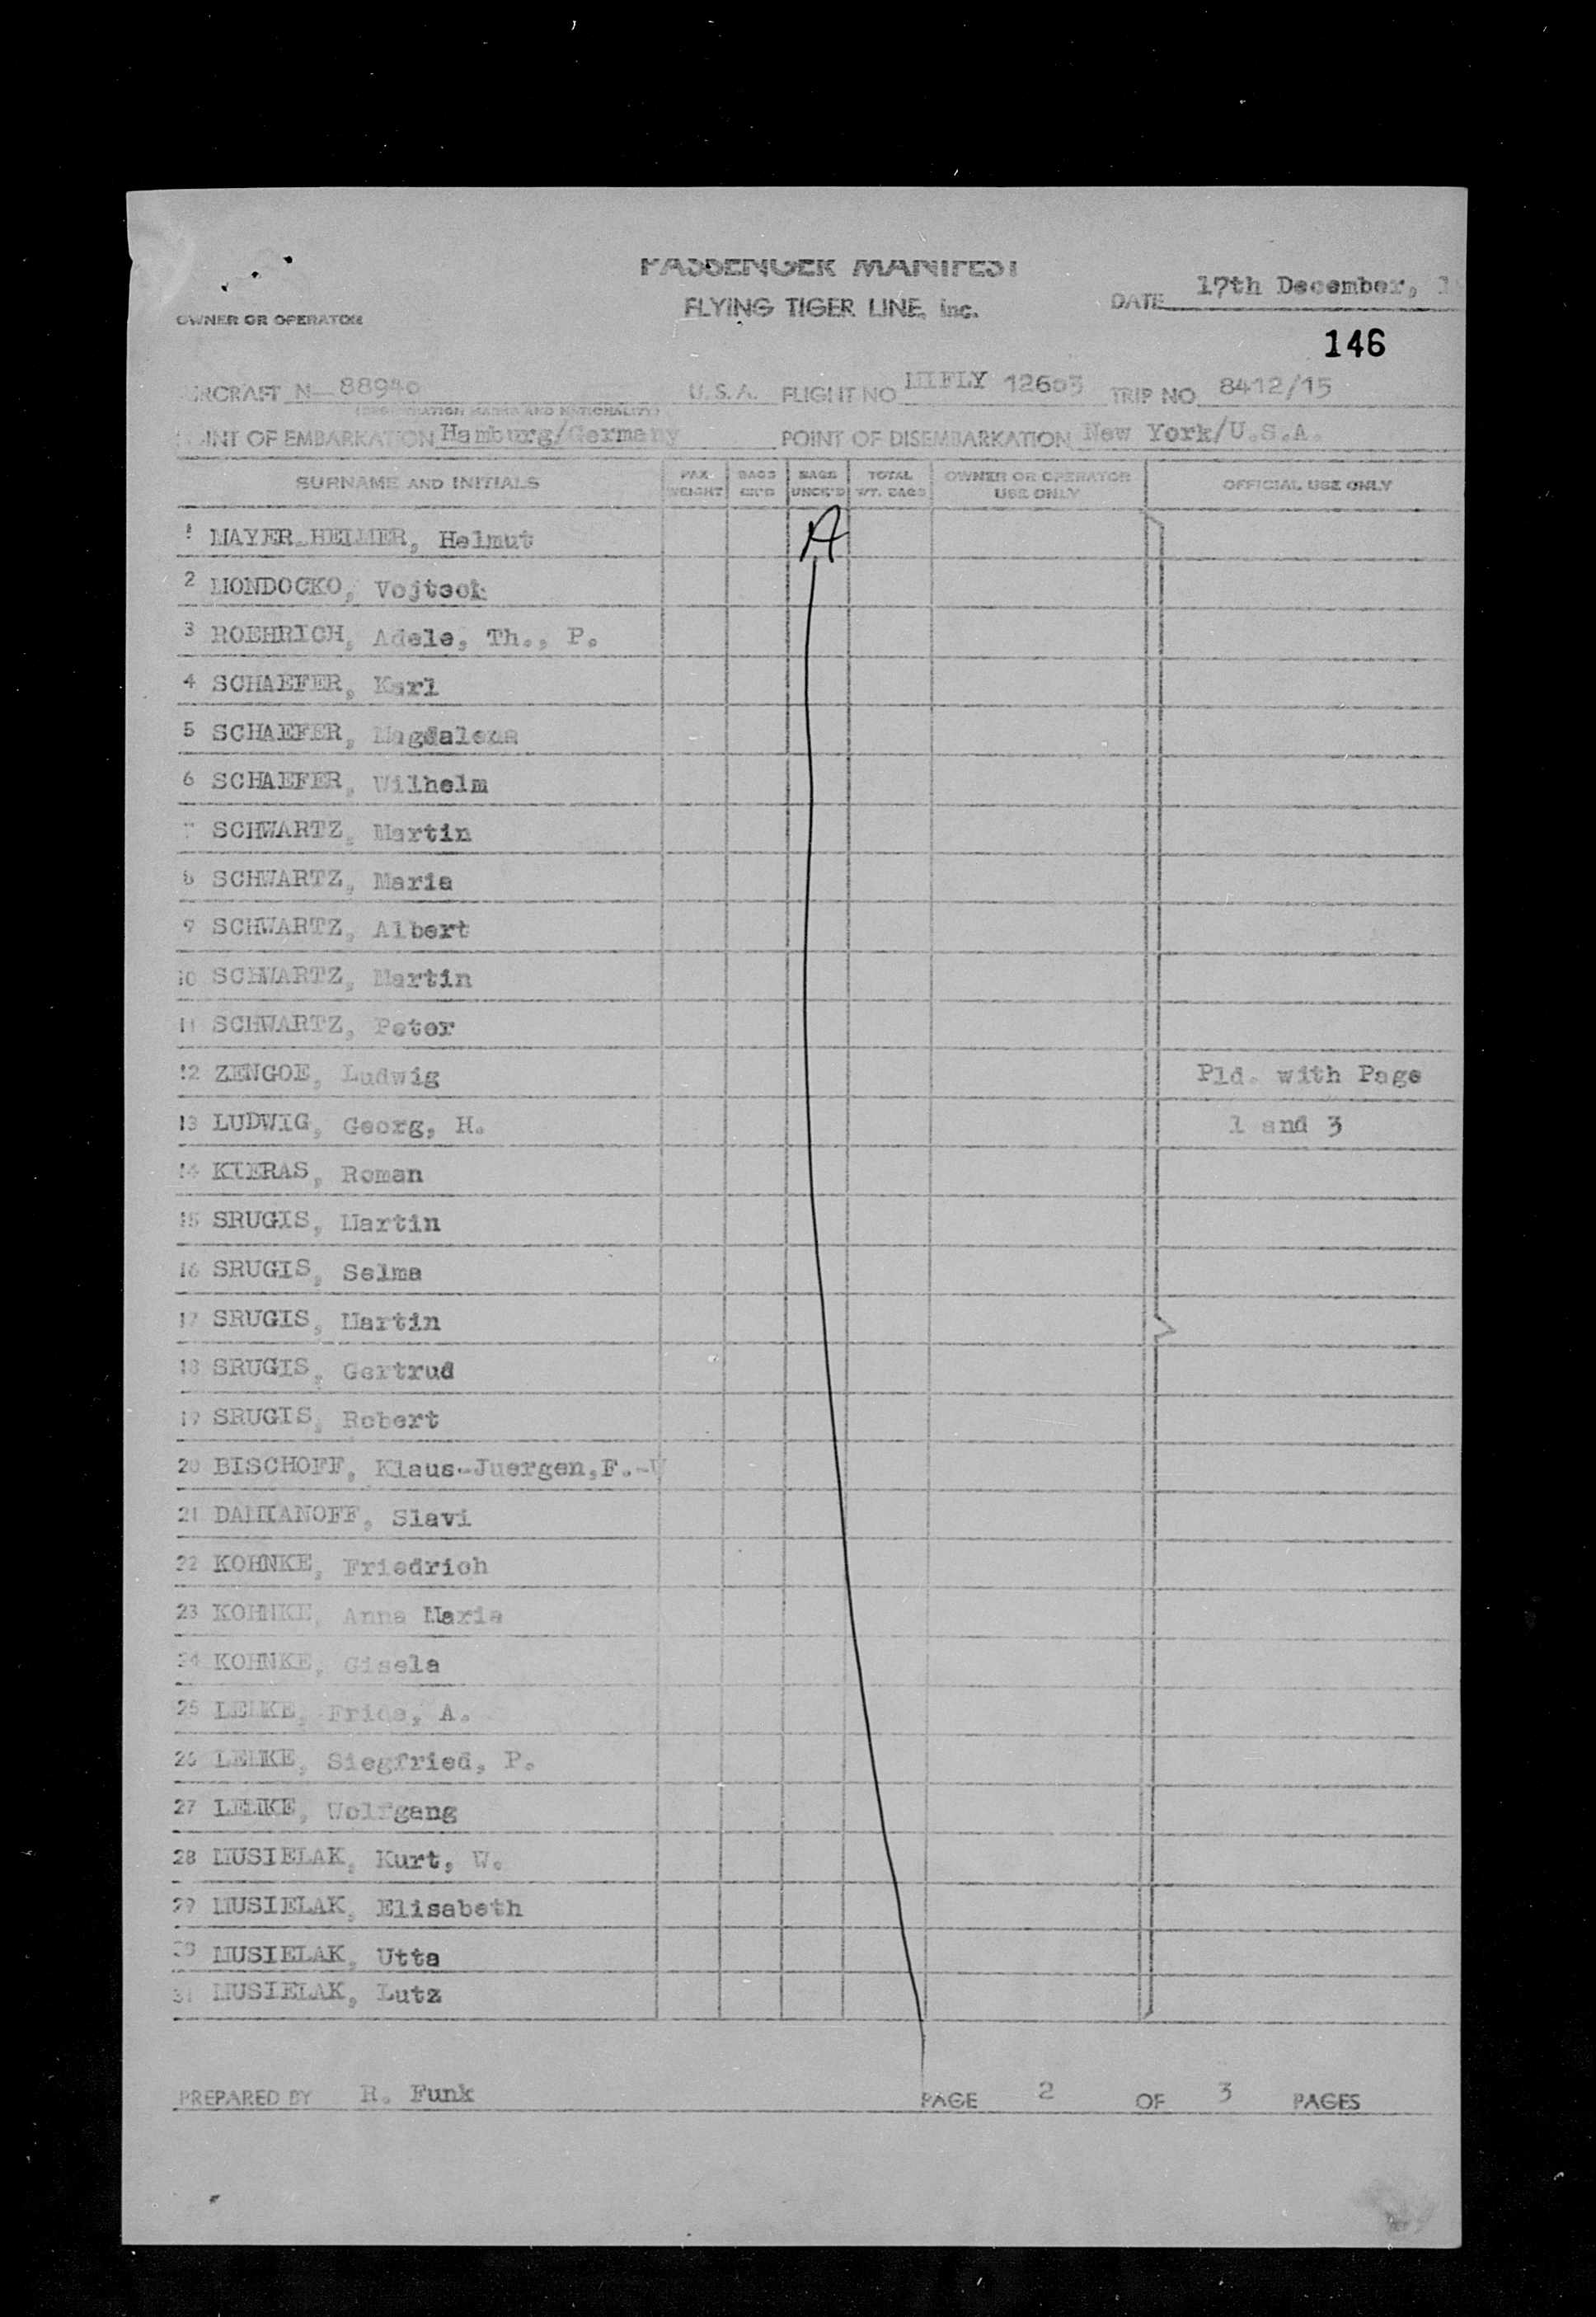 PASSENGER MANIFEST
FLYING TIGER LINE, Inc.
DATE 17th December,
OWNER OR OPERATOR
146
AIRCRAFT N- 88940 U.S.A. FLIGHT NO MIFLY 12603 TRIP NO 8412/15
(REGISTRATION MARKS AND NATIONALITY)
POINT OF EMBARKATION Hamburg/Germany POINT OF DISEMBARKATION New York/U.S.A.
SURNAME AND INITIALS PAX. WEIGHT BAGS CK'D BAGS UNCK'D TOTAL WT. BAGS OWNER OR OPERATOR USE ONLY OFFICIAL USE ONLY
A
1 MAYER-HEIMER, Helmut
2 MONDOCKO, Vojteck
3 ROEHRICH, Adele, Th., P.
4 SCHAEFER, Karl
5 SCHAEFER, Magdalena
6 SCHAEFER, Wilhelm
7 SCHWARTZ, Martin
8 SCHWARTZ, Maria
9 SCHWARTZ, Albert
10 SCHWARTZ, Martin
11 SCHWARTZ, Peter
12 ZENGOE, Ludwig Pld. with Page
13 LUDWIG, Georg, H. 1 and 3
14 KIERAS, Roman
15 SRUGIS, Martin
16 SRUGIS, Selma
17 SRUGIS, Martin
18 SRUGIS, Gertrud
19 SRUGIS, Robert
20 BISCHOFF, Klaus-Juergen,F.-W
21 DAMIANOFF, Slavi
22 KOHNKE, Friedrich
23 KOHNKE, Anna Maria
24 KOHNKE, Gisela
25 LEMKE, Frida, A.
26 LEMKE, Siegfried, P.
27 LEMKE, Wolfgang
28 MUSIELAK, Kurt, W.
29 MUSIELAK, Elisabeth
30 MUSIELAK, Utta
31 MUSIELAK, Lutz
PREPARED BY R. Funk PAGE 2 OF 3 PAGES